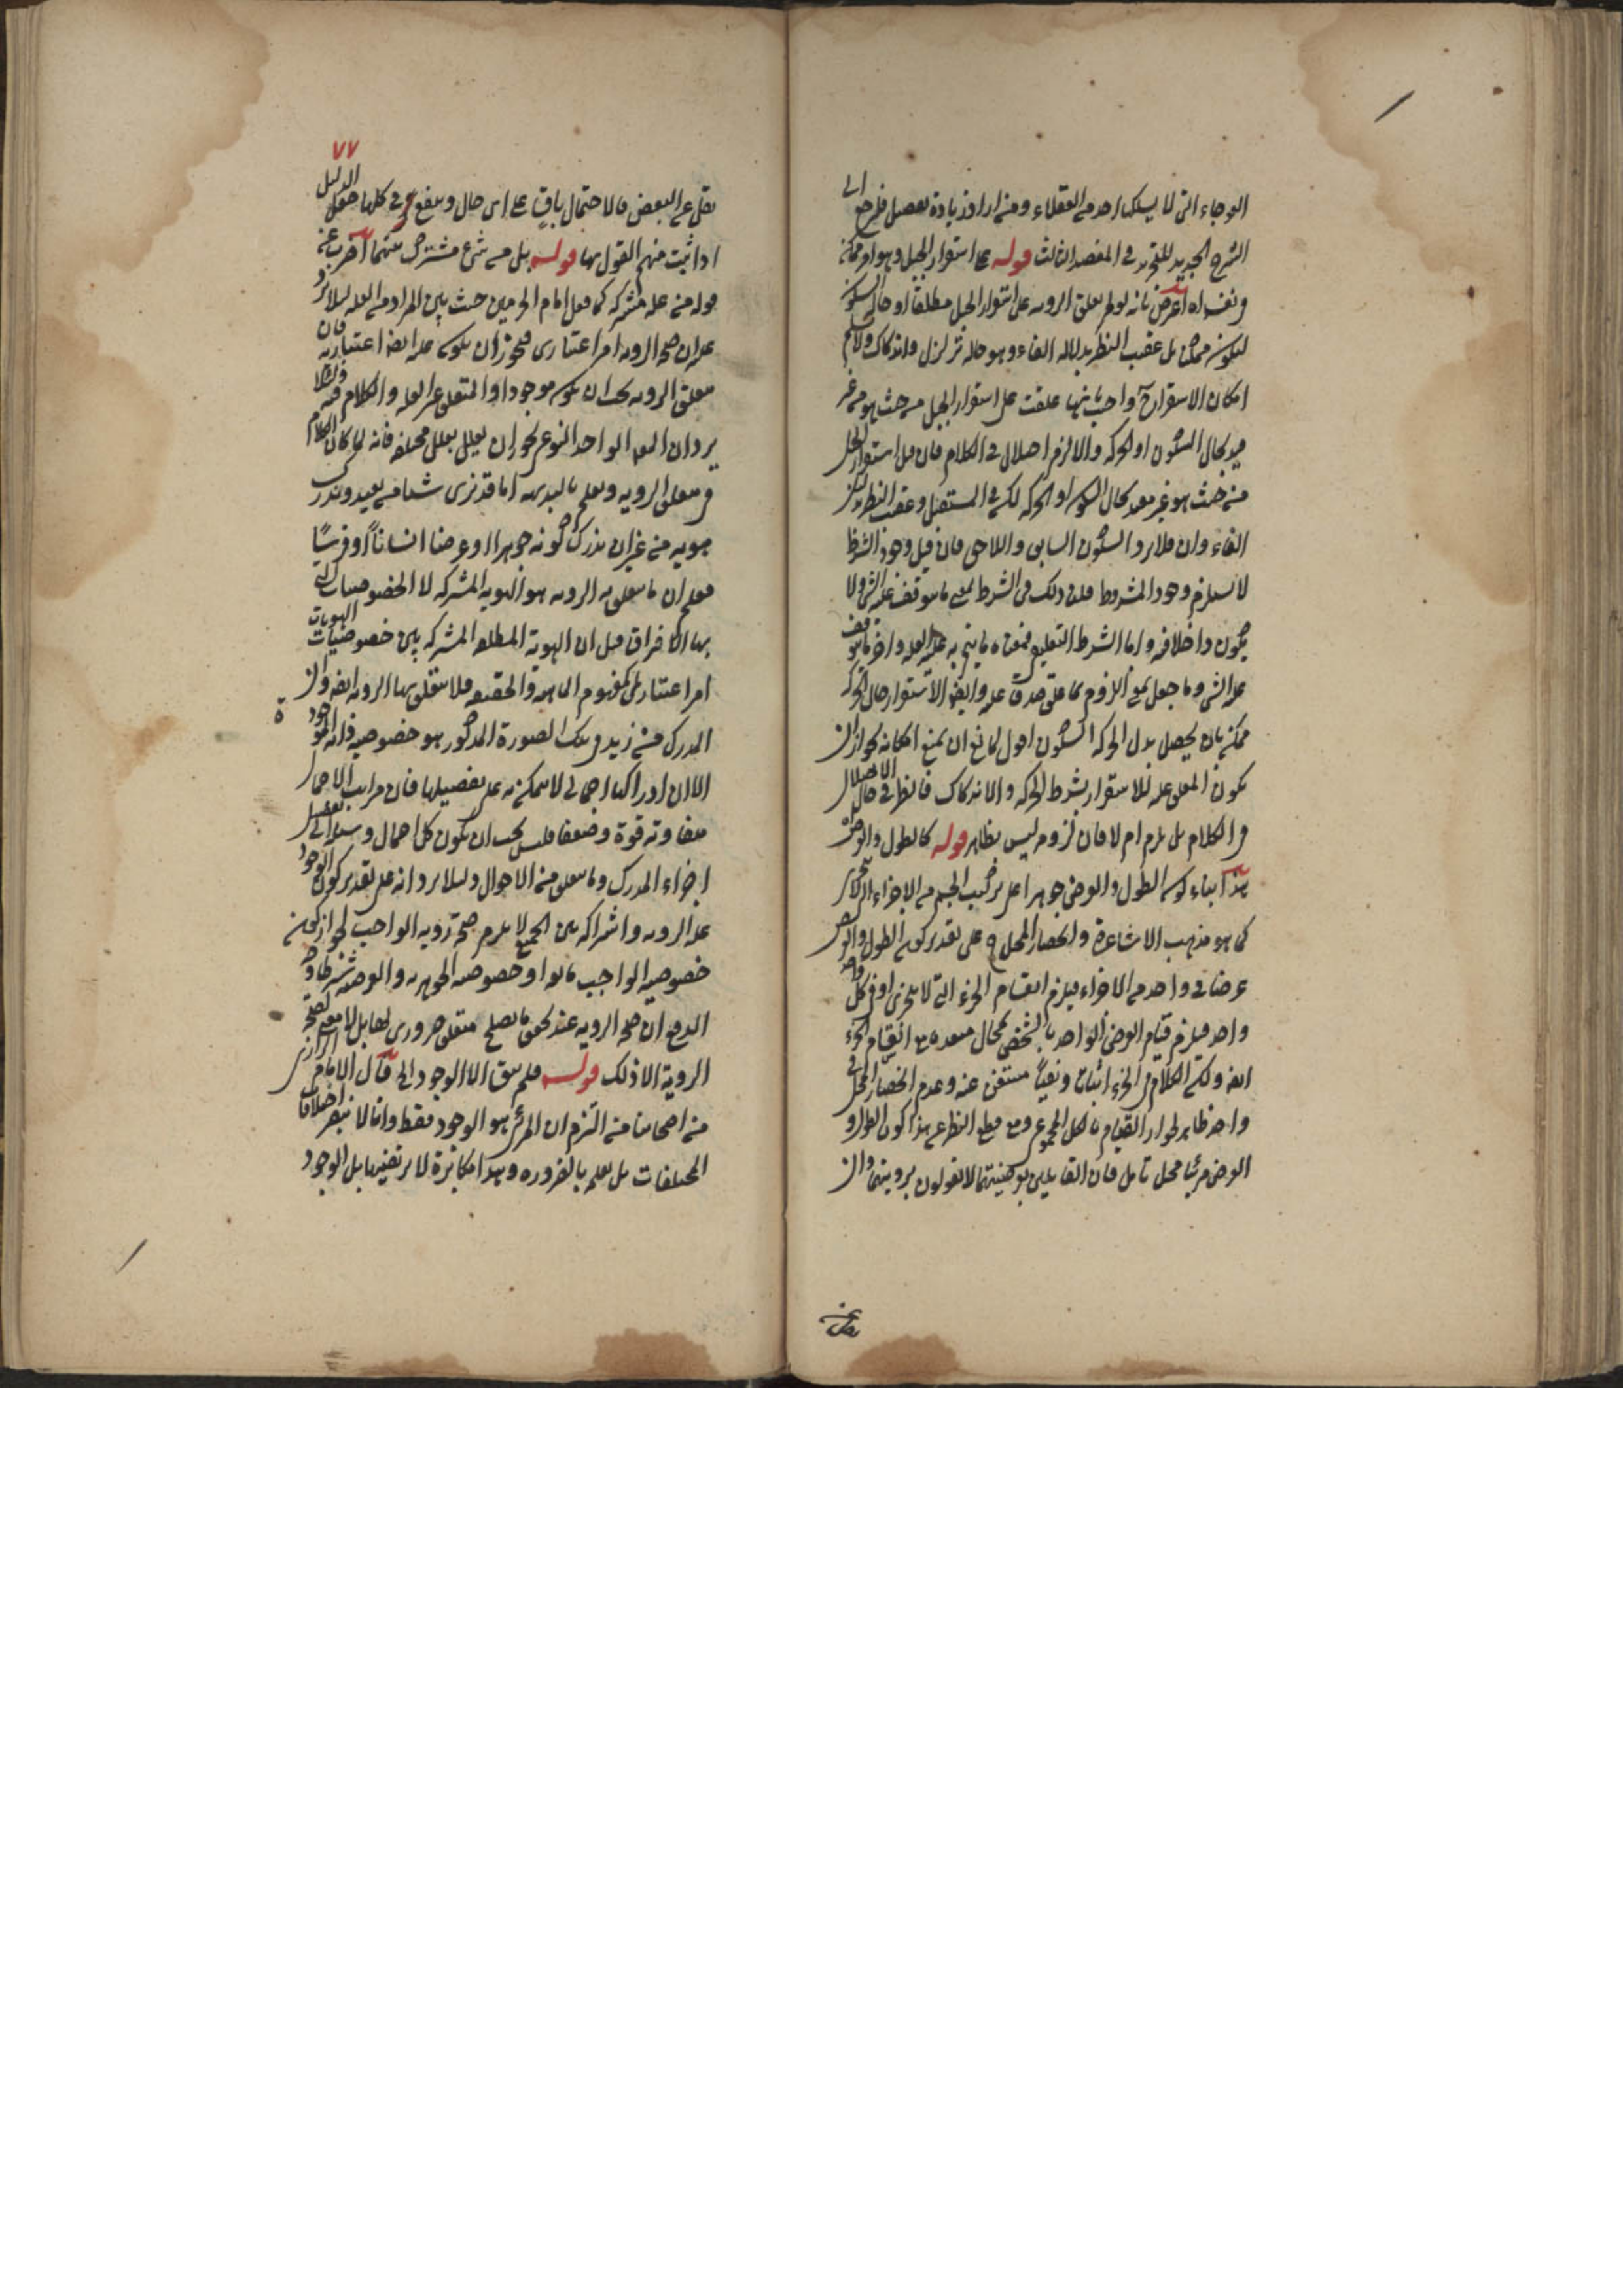 العوجاء التى لا يسلكها احد من العقلاء ومن اراد زيادة تفصيل فليرجع الى
الشرح الجديد للتجريد فى المقصد الثالث قوله على استقرار الجبل وهو امر ممكن
فى نفسه اه اعترض بانه لو لم يعلق الرويه على استقرار الجبل مطلقا او حال السكون
ليكون ممكنا بل عقيب النظر بدلاله الفاء وهو حاله تزلزل واندكاك ولا نسلم
امكان الاستقرار ح واجيب بانها علقت على استقرار الجبل من حيث هو من غير
قيد بحال السكون او الحركه والا لزم اضلال فى الكلام فان قيل استقرار الجبل
من حيث هو غير مقيد بحال السكون او الحركه لكن فى المستقبل وعقيب النظر بدليل
الفاء وان فلا يرد السكون السابق واللاحق فان قيل وجود الشرط
لا يستلزم وجود المشروط قلنا ذلك فى الشرط بمعنى ما يتوقف عليه الشئ ولا
يكون داخلا فيه واما الشرط التعليقى فمعناه ما يتم به عليه العله واخر ما يتوقف
عليه الشئ وما جعل بمنزله الملزوم لما علق صدق عليه وايضا الاستقرار حال الحركه
ممكن بان يحصل بدل الحركه السكون اقول لمانع ان يمنع امكانه لجواز ان
يكون المعلق عليه للاستقرار بشرط الحركه والاندكاك فانظر فى حال الاضلال
فى الكلام هل يلزم ام لا فان لزومه ليس بظاهر قوله كالطول والعرض
هذا بناء كون الطول والعرض جوهرا على تركيب الجسم من الاجزاء التى لا تتجزى
كما هو مذهب الاشاعرة وانحصار المحل ح على تقدير كون الطول والعرض
عرضا فى واحد من الاجزاء فيلزم انقسام الجزء التى لا يتجزى او فى كل واحد
واحد فيلزم قيام العرض الواحد بالشخص بمحال متعدده مع انقسام الجزء
ايضا ولكن الكلام فى الجزء اثباتا ونفيا مستغن عنه وعدم انحصار المحل فى
واحد ظاهر لجواز القيام بالكل المجموع ومع قطع النظر عن هذا كون الطول و
العرض مرئيا محل تامل فان القايلين بعرضيتهما لا يقولون برويتهما وان
٧٧
نقل عن البعض فالاحتمال باق على اى حال وينفع ح فى كلها جعل الدليل
اذا ثبت منهم القول بها قوله بل من شئ مشترك بينهما آه هرب عن
قوله من عله مشتركه كما فعل امام الحرمين حيث بين المراد من العله لئلا يرد
عليه ان صحه الرويه امر اعتبارى فيجوز ان يكون علته ايضا اعتباريه فان
متعلق الرويه يجب ان يكون موجودا والمتعلق غير العله والكلام فيه ولئلا
يرد ان المعلول الواحد النوعى يجوز ان يعلل بعلل مختلفه فانه لما كان الكلام
فى متعلق الرويه ويعلم بالبديهه انا قد نرى شبحا من بعيد وندرك
هويه من غير ان ندرك كونه جوهرا او عرضا انسانا او فرسا
فعلم ان ما يتعلق به الرويه هو الهويه المشتركه لا الخصوصيات التى
بها الافتراق قيل ان الهوية المطلقه المشتركه بين خصوصيات الهويات
امرا اعتباريا كمفهوم الماهيه والحقيقه فلا يتعلق بها الرويه ايضا وان
المدرك من زيد فى تلك الصورة المذكور هو خصوصيه ذاته الموجودة
الا ان ادراكها اجمالى لا يتمكن به على تفصيلها فان مراتب الاجمال
متفاوته قوة وضعفا فليس يجب ان يكون كل اجمال وسيله الى تفصيل
اجزاء المدرك وما يتعلق من الاحوال ولئلا يرد انه على تقدير كون الوجود
عله الرويه واشتراكه بين الجميع لا يلزم صحة رويه الواجب لجواز كون
خصوصيه الواجب مانعا او خصوصيه الجوهريه والعرضيه شرطا وجه
الدفع ان صحه الرويه عند تحقق ما يصلح متعلقا ضرورى لها بل لا معنى لصحة
الروية الا ذلك قوله فلم يبق الا الوجود الخ قال الامام الرازى
من اصحابنا من التزم ان المرئى هو الوجود فقط وانا لا نبصر اختلافات
المختلفات بل يعلم بالضروره وهذا مكابرة لا نرتضيها بل الوجود